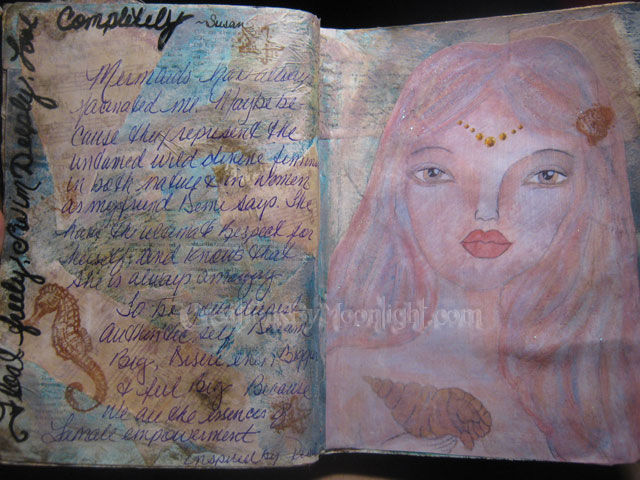 Float freely, Swim Deeply, Love
Completely
~Susan
Mermaids have always
facinated me. Maybe be-
cause they represent the
untamed wild divine feminine
in both nature & in women
as my friend Demi says. She
has the utmost Respect for
herself, and knows that
she is always amazing.
To be your deepest
authentic self. Dream
Big, Desire even Bigger
& feel Big. Because
We are the essences of
Female empowerment
inspired by
byMoonlight.com